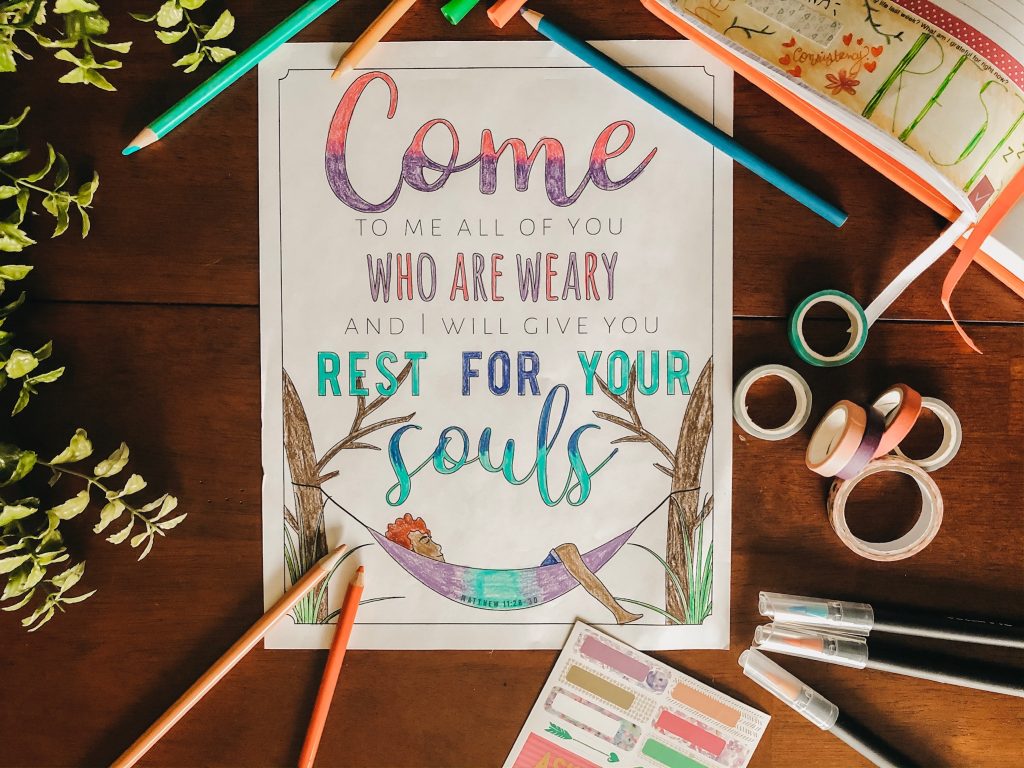 Come
TO ME ALL OF YOU
WHO ARE WEARY
AND I WILL GIVE YOU
REST FOR YOUR
souls
MATTHEW 11:28-30
Consistency
life last week? What am I grateful for right now?